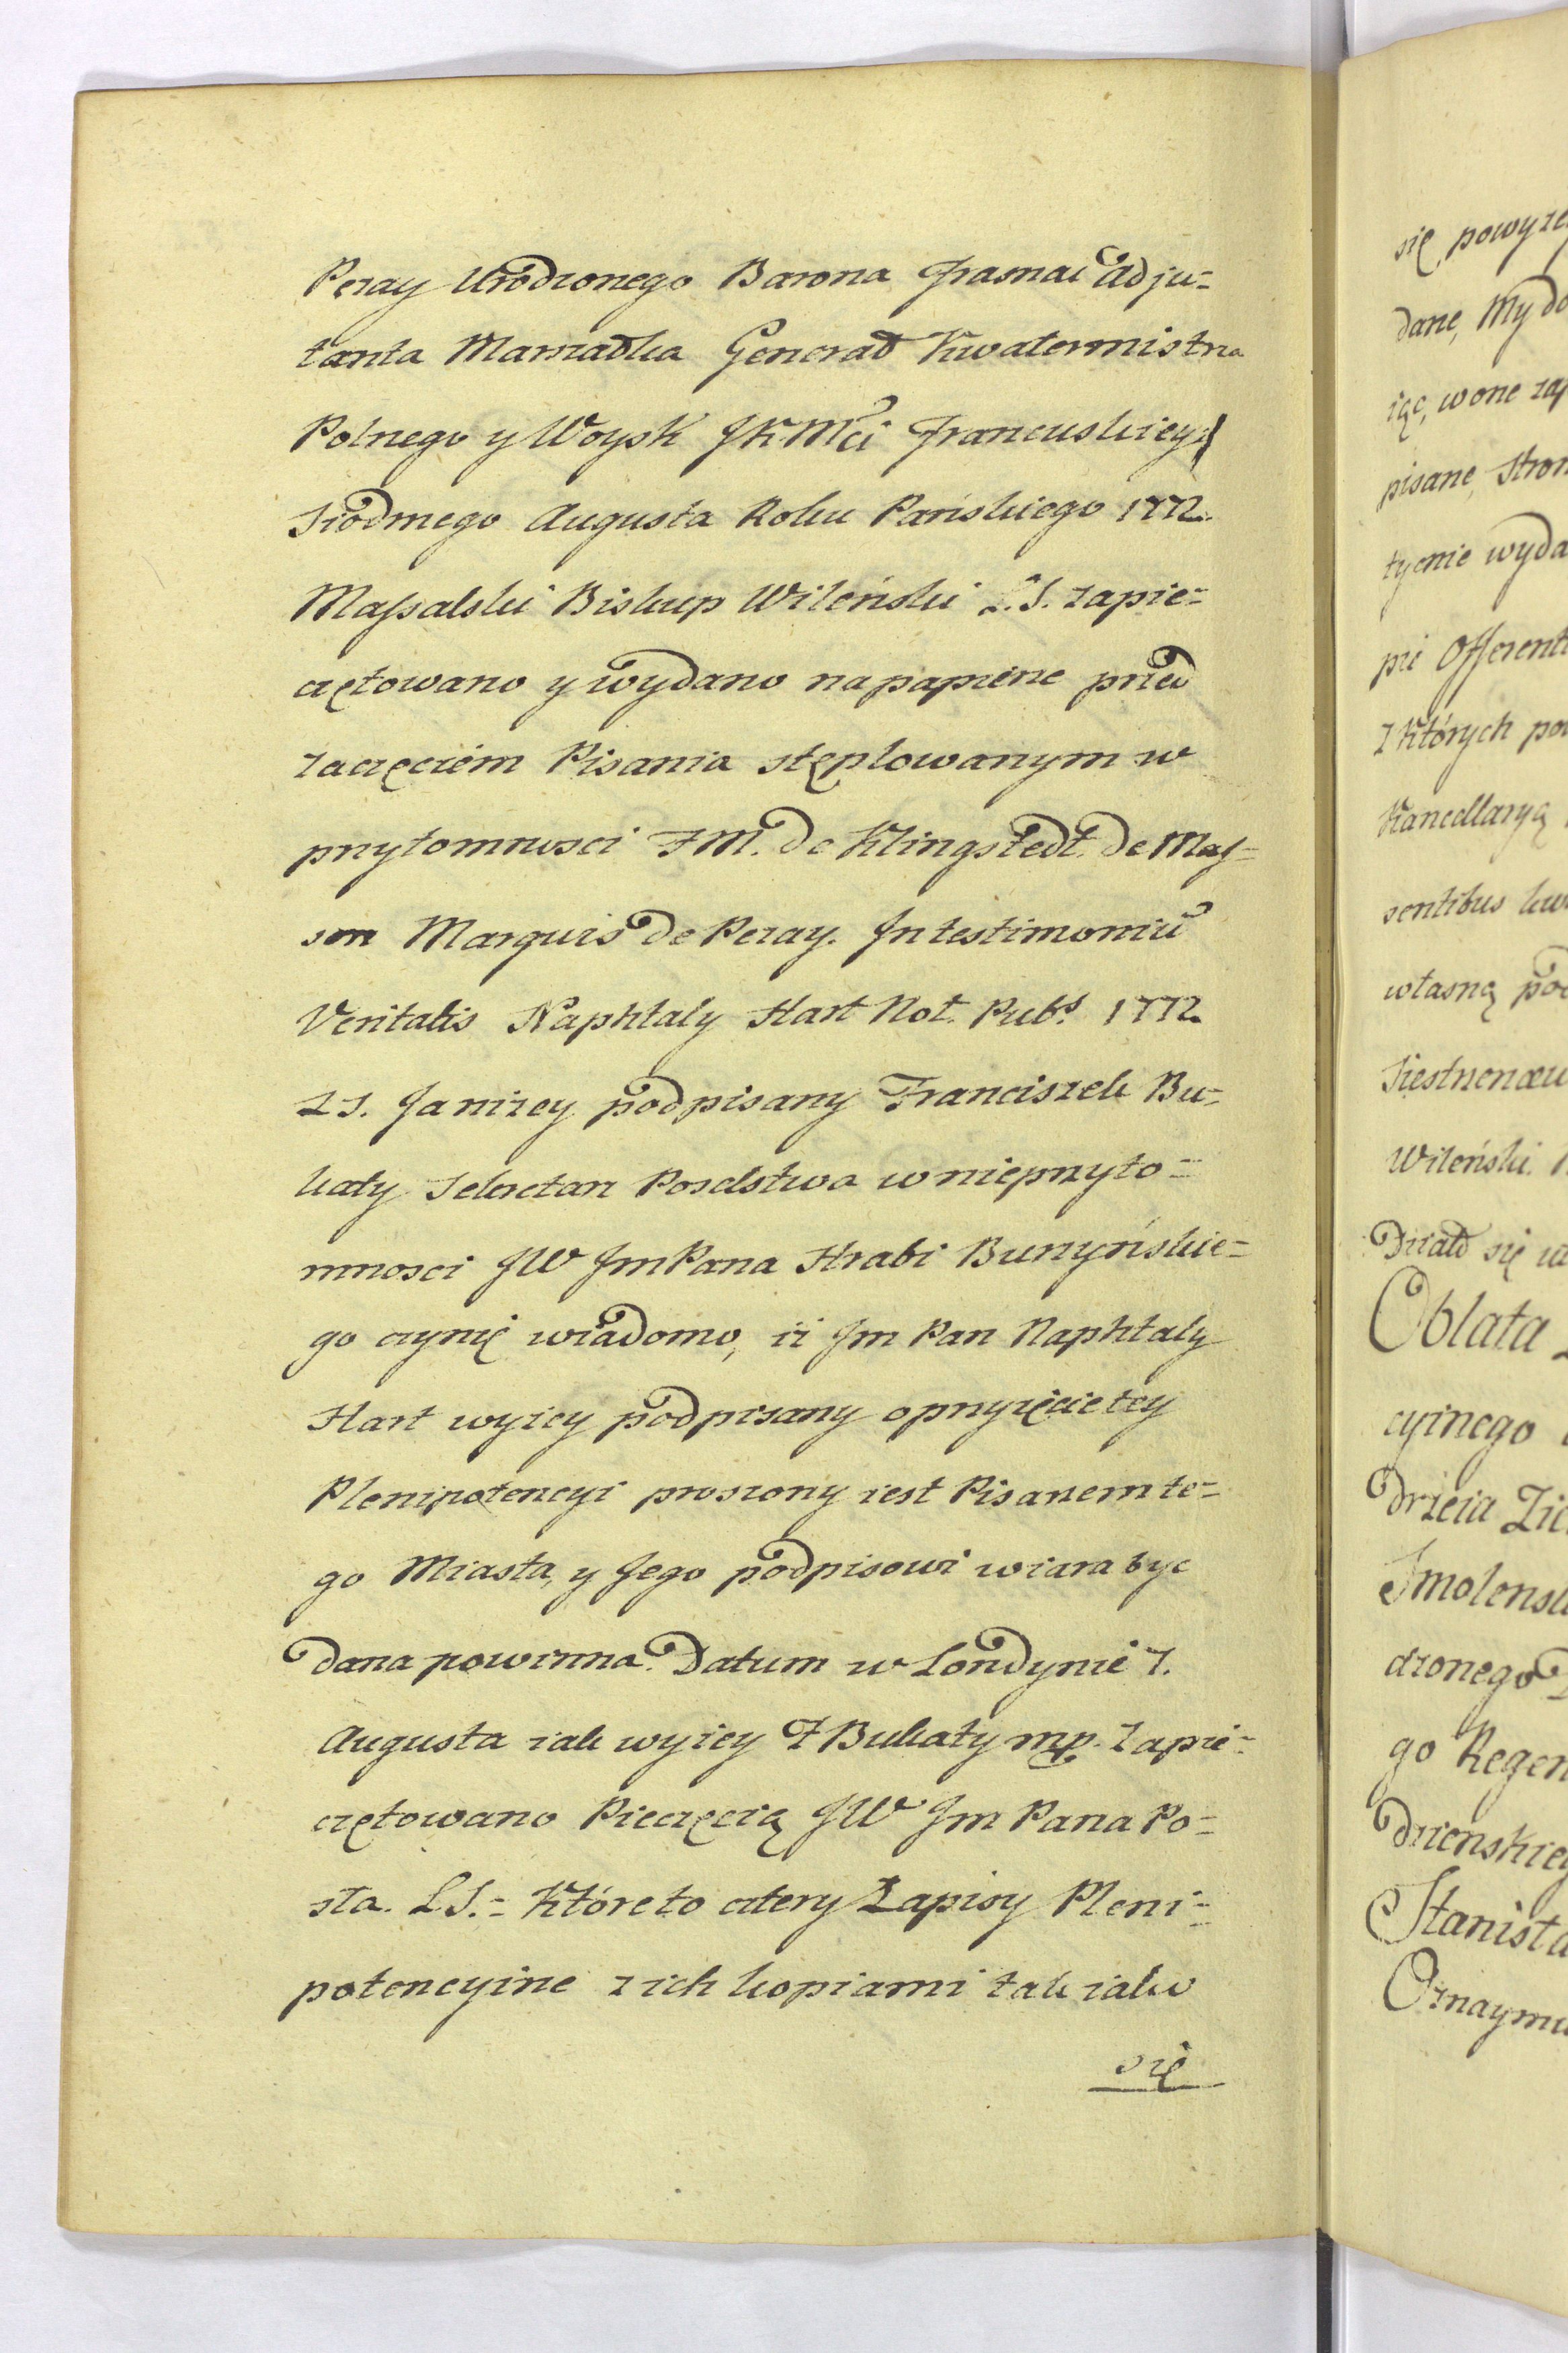 Pezay Urodzonego Barona Jrasnai Adju=
tanta Marszałka Generał Kwatermistrza
Polnego y Woysk JKMci Francuskiey
Siodmego Augusta Roku Pańskiego 1772.
Massalski Biskup Wileński L.S. zapie=
czętowano y wydano na papierze przed
zaczęciem Pisania stęplowanym w
przytomnosci F M. de Klingstedt. de Mas=
son Marquis de Pezay. In testimoniu
Veritatis Naphtaly Hart Not. Pubs. 1772
LS. Ja niżey podpisany Franciszek Bu=
katy Sekretarz Poselstwa w nieprzyto=
mnosci JW JmPana Hrabi Burzyńskie=
go czynię wiadomo, iż Jm Pan Naphtaly
Hart wyżey podpisany o przyięcie tey
Plenipotencyi proszony iest Pisarzem te=
go Miasta, y Jego podpisowi wiara byc
dana powinna. Datum w Londynie 7.
Augusta iak wyżey F Bukaty mp. Zapie=
czętowano Pieczęcią JW Jm Pana Po=
sła. LS.= Które to cztery Zapisy Pleni=
potencyine z ich kopiami tak iako
się
się powyże
dane, My do
iąc, w one zap
pisane, Stron
tycznie wyda
pie Offerent
z Których pow
Kancellaryą
sentibus kw
własną pod
Siestrzencew
Wileński.
Działo się w
Oblata
cyinego
Drzeia Zie
Smolensk
dzonego
go Regen
Dzienskieg
Stanisła
Oznaymu